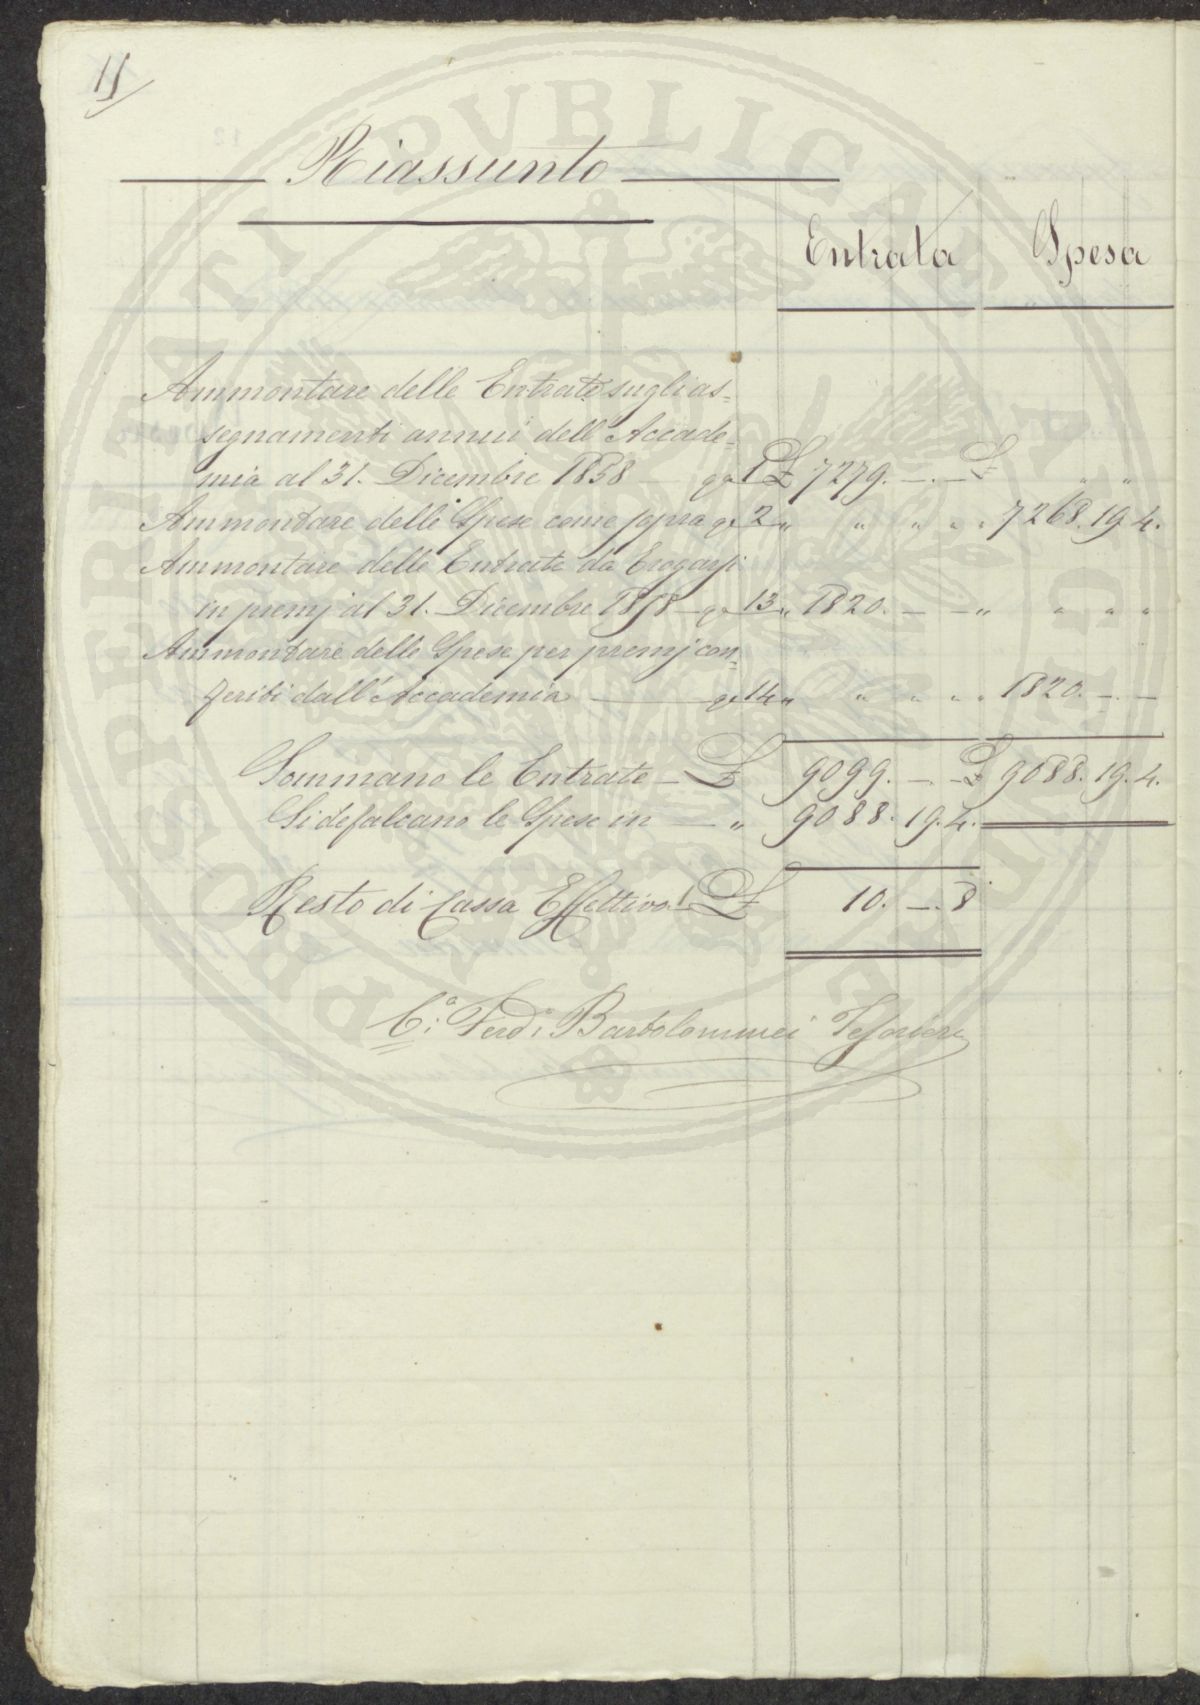 15
Riassunto
Entrata Spesa
Ammontare delle Entrate sugli as=
segnamenti annui dell' Accade=
mia al 31. Dicembre 1858 — 1 £ 7279. —. — £ " "
Ammontare delle Spese come sopra 2 " " " " " 7268. 19. 4.
Ammontare delle Entrate da Erogarsi
in premj al 31. Dicembre 1858 — 13 " 1820. — — " " " "
Ammontare delle Spese per premj con=
feriti dall' Accademia — 14 " " " " " 1820. —. —
Sommano le Entrate — £ 9099. —. — £ 9088. 19. 4.
Si defalcano le Spese in — " 9088. 19. 4.
Resto di Cassa Effettivo £ 10. —. 8
C.e Ferd.o Bartolommei Tesoriere
PROSPERITATI PUBLICAE AUGENDAE